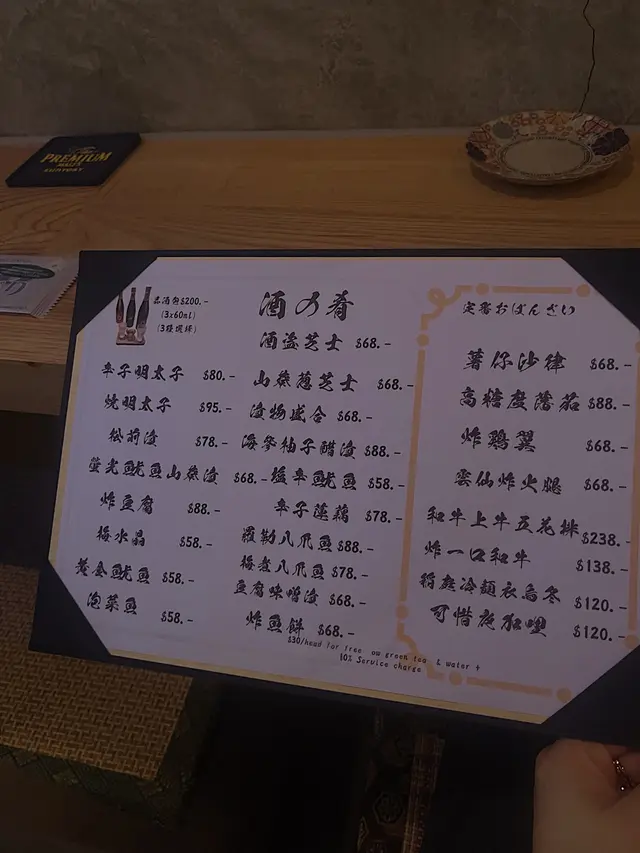 The
PREMIUM
MALT'S
SUNTORY
酒の肴
$200.-
(3x60ml)
(3種選擇)
辛子明太子 $80.-
燒明太子 $95.-
松前漬 $78.-
螢光魷魚山葵漬 $68.-
炸豆腐 $88.-
梅水晶 $58.-
黃金魷魚 $58.-
泡菜魚 $58.-
酒盜芝士 $68.-
山葵蔥芝士 $68.-
漬物盛合 $68.-
海參柚子醋漬 $88.-
塩辛魷魚 $58.-
辛子蓮藕 $78.-
羅勒八爪魚 $88.-
梅煮八爪魚 $78.-
豆腐味噌漬 $68.-
炸魚餅 $68.-
定番おばんざい
薯仔沙律 $68.-
高糖度蕃茄 $88.-
炸鷄翼 $68.-
雲仙炸火腿 $68.-
和牛上牛五花 $238.-
炸一口和牛 $138.-
稻庭冷麵衣烏冬 $120.-
可惜夜咖喱 $120.-
$30/head for free ow green tea & water +
10% Service charge